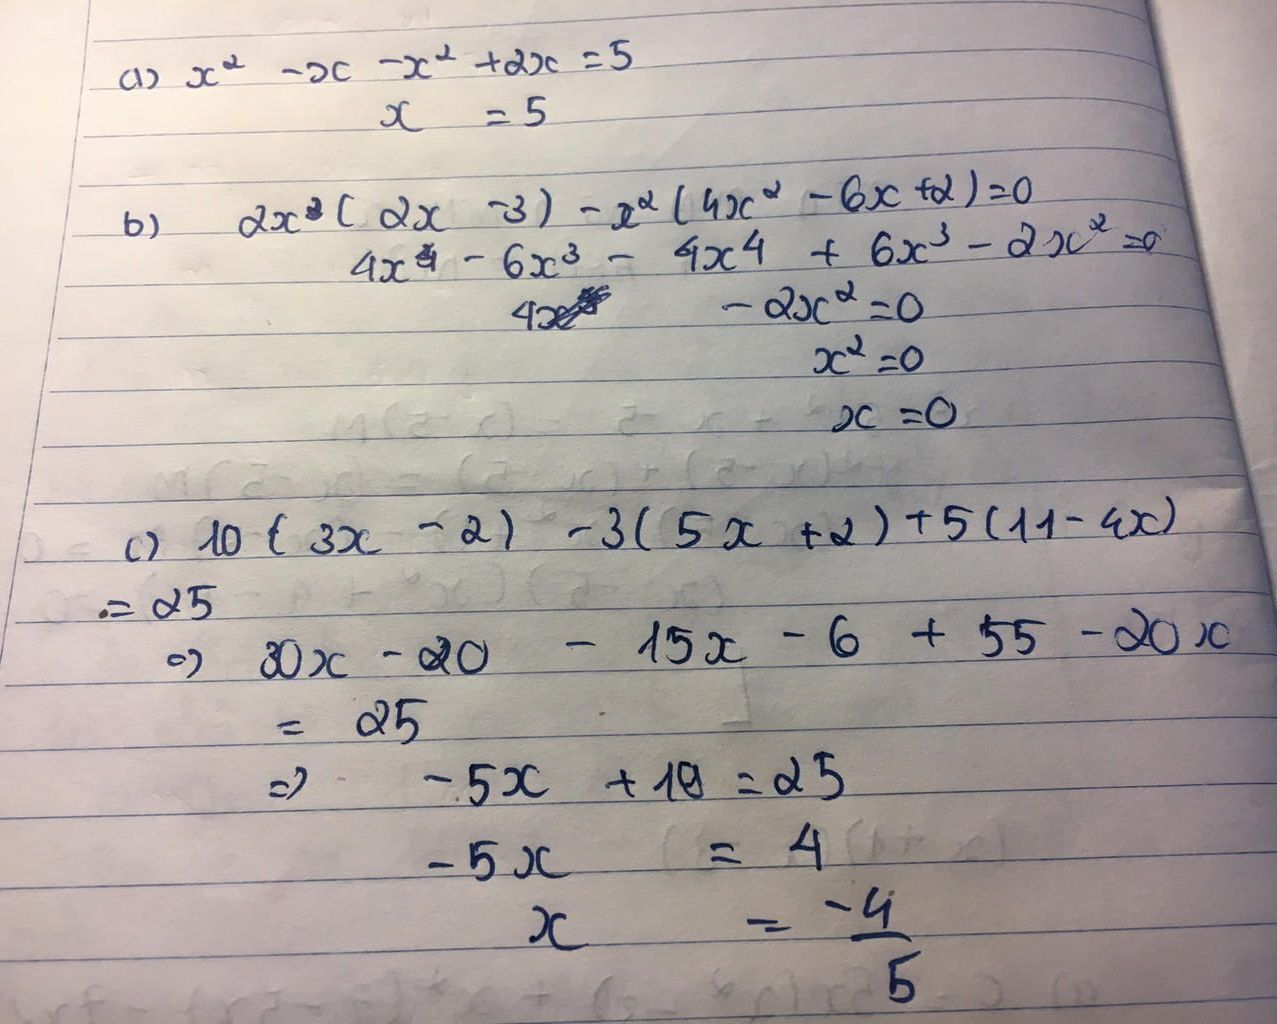 a) x² -x -x² +2x = 5
x = 5
b) 2x³ ( 2x -3) - x² (4x² - 6x +2) = 0
4x⁴ - 6x³ - 4x⁴ + 6x³ - 2x² = 0
- 2x² = 0
x² = 0
x = 0
c) 10 ( 3x - 2) - 3( 5x +2) + 5(11 - 4x)
= 25
=> 30x - 20 - 15x - 6 + 55 - 20x
= 25
=> -5x + 19 = 25
-5x = 4
x = -4/5